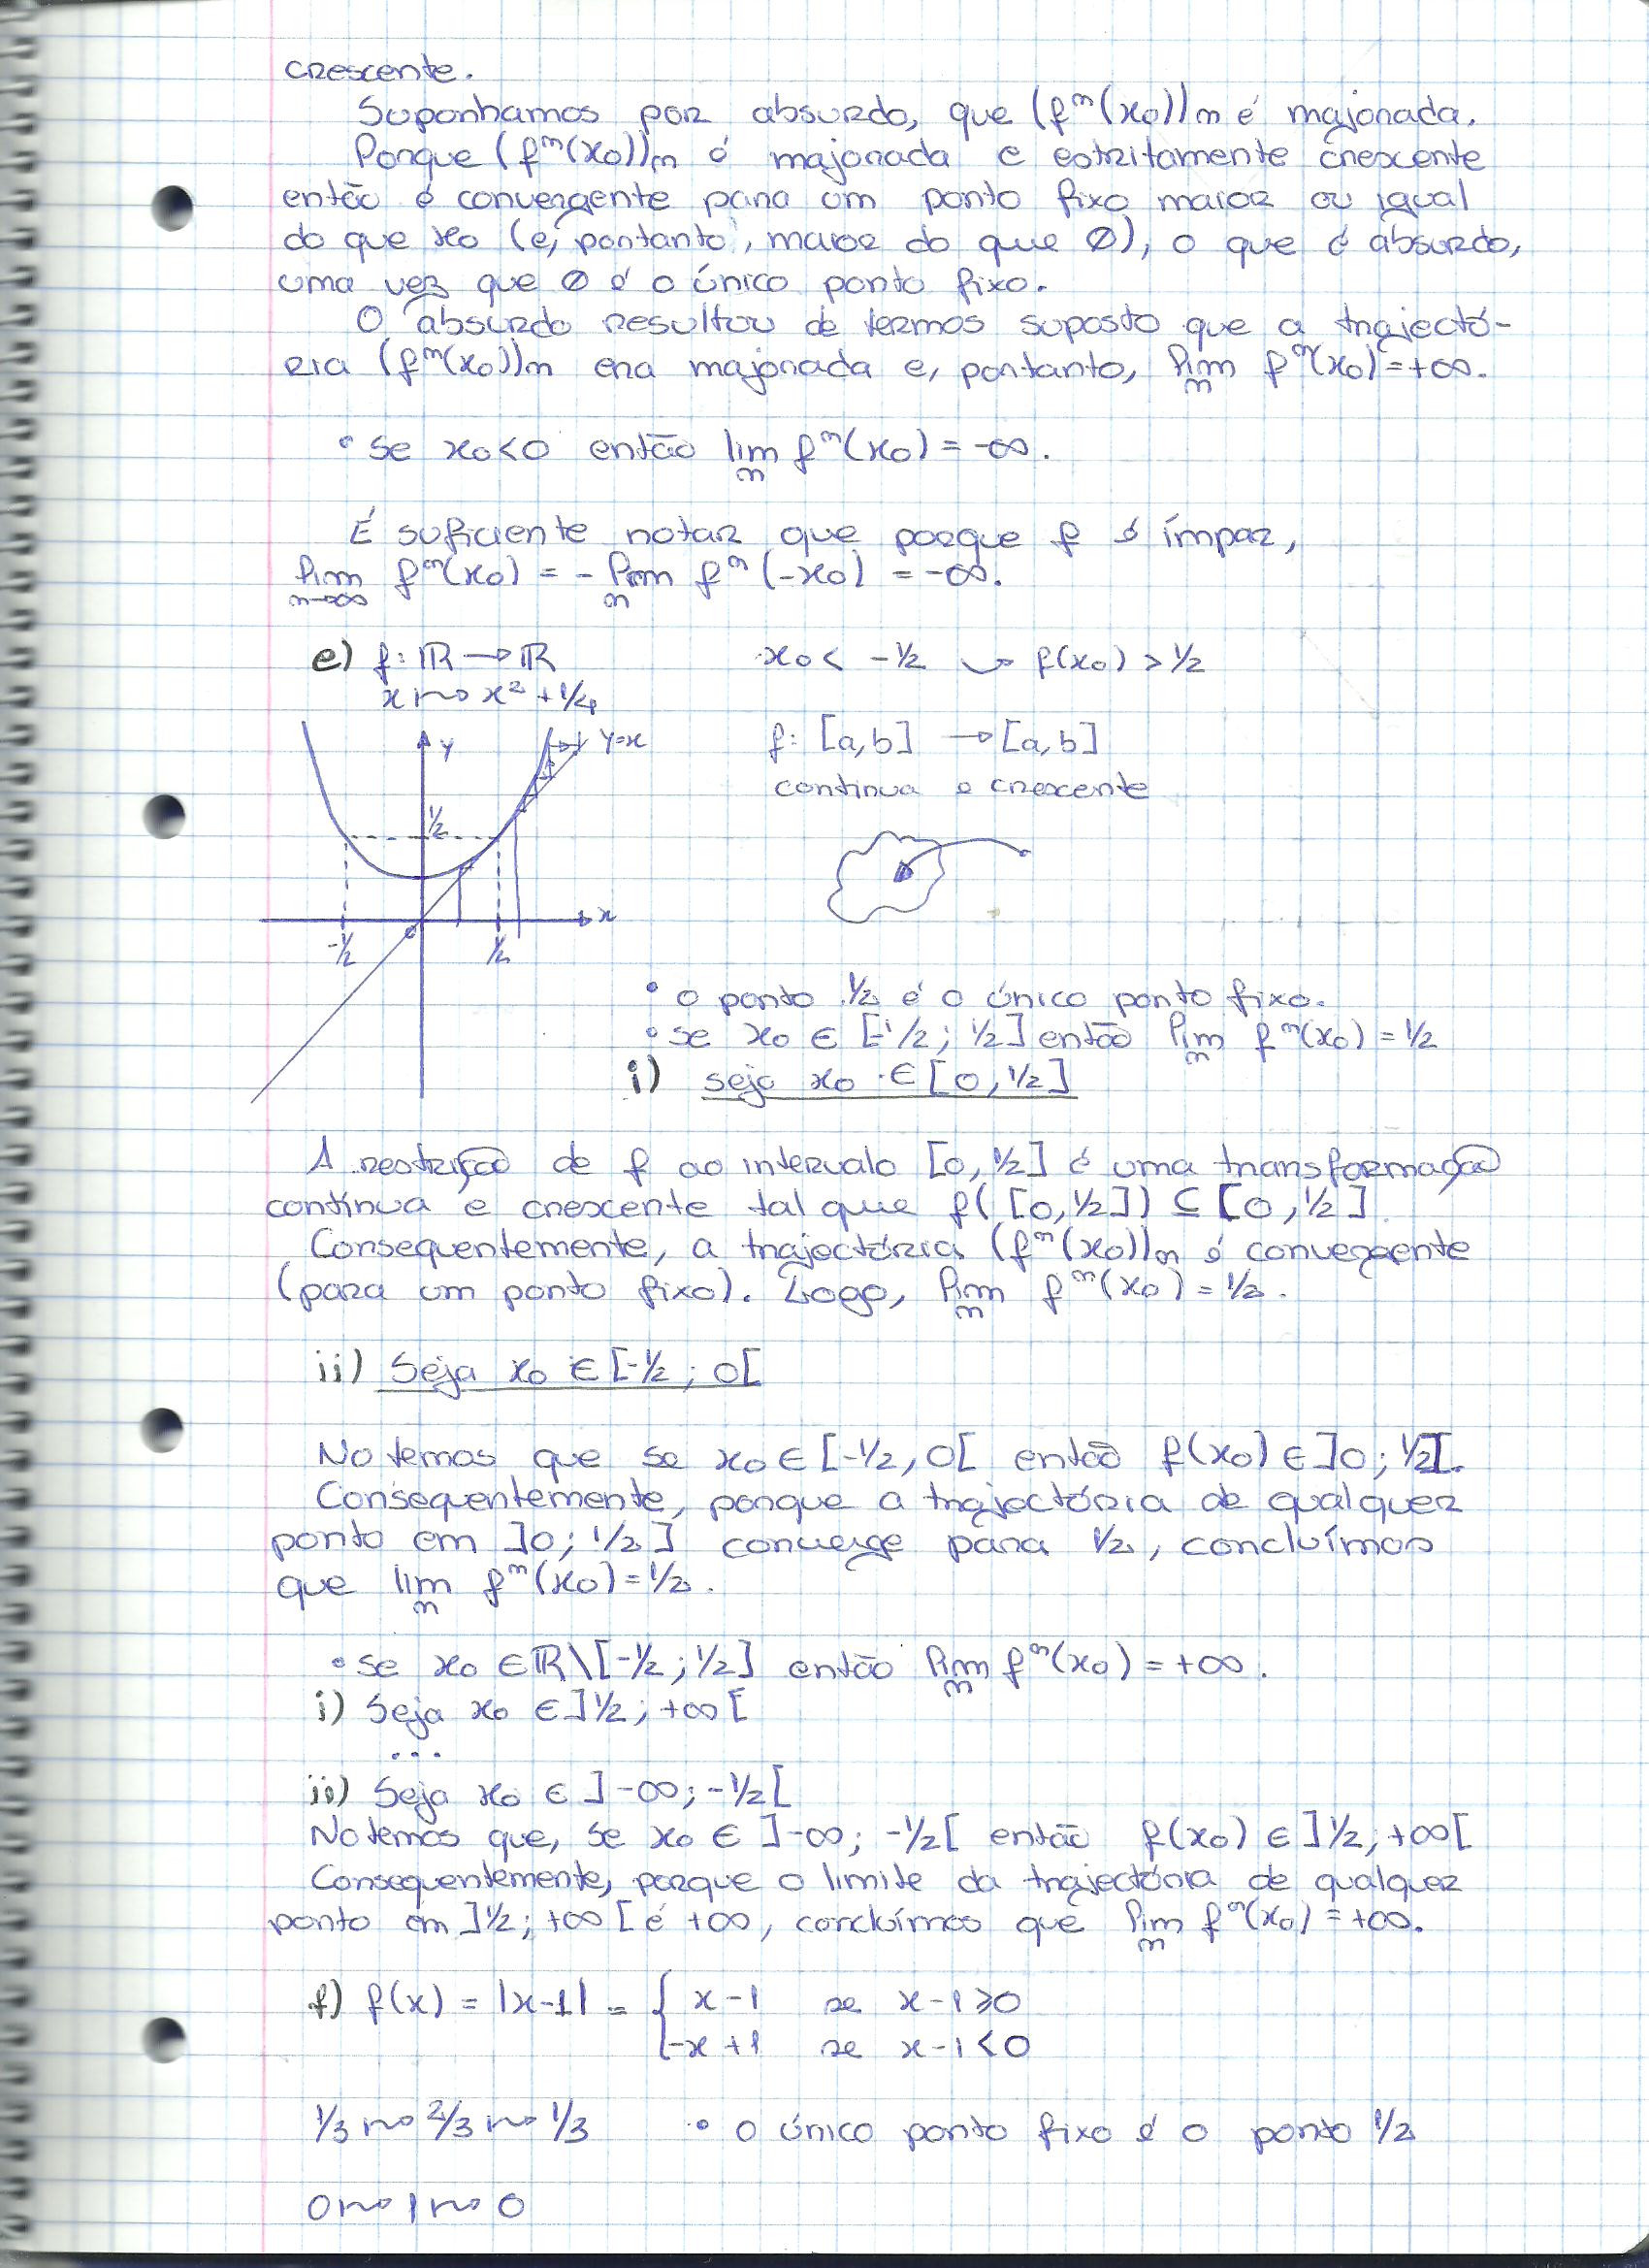 crescente.
Suponhamos por absurdo, que (fⁿ(x₀))ₙ é majorada.
Porque (fⁿ(x₀))ₙ é majorada e estritamente crescente
então é convergente para um ponto fixo maior ou igual
do que x₀ (e, portanto, maior do que 0), o que é absurdo,
uma vez que 0 é o único ponto fixo.
O absurdo resultou de termos suposto que a trajectó-
ria (fⁿ(x₀))ₙ era majorada e, portanto, lim fⁿ(x₀) = +∞.
n
• se x₀<0 então lim fⁿ(x₀) = -∞.
n
É suficiente notar que porque f é ímpar,
lim fⁿ(x₀) = - lim fⁿ(-x₀) = -∞.
n→∞ n
e) f: ℝ → ℝ x₀ < -1/2 ⤳ f(x₀) > 1/2
x ⤳ x² + 1/4
y y=x f: [a,b] → [a,b]
contínua e crescente
1/2
x
0
-1/2 1/2
• o ponto 1/2 é o único ponto fixo.
• se x₀ ∈ [-1/2 ; 1/2] então lim fⁿ(x₀) = 1/2
n
i) seja x₀ ∈ [0, 1/2]
A restrição de f ao intervalo [0, 1/2] é uma transformação
contínua e crescente tal que f([0, 1/2]) ⊆ [0, 1/2]
Consequentemente, a trajectória (fⁿ(x₀))ₙ é convergente
(para um ponto fixo). Logo, lim fⁿ(x₀) = 1/2.
n
ii) Seja x₀ ∈ [-1/2 ; 0[
Notemos que se x₀ ∈ [-1/2, 0[ então f(x₀) ∈ ]0 ; 1/2].
Consequentemente, porque a trajectória de qualquer
ponto em ]0; 1/2] converge para 1/2, concluímos
que lim fⁿ(x₀) = 1/2.
n
• se x₀ ∈ ℝ\[-1/2 ; 1/2] então lim fⁿ(x₀) = +∞.
n
i) Seja x₀ ∈ ]1/2 ; +∞[
...
ii) Seja x₀ ∈ ]-∞; -1/2[
Notemos que, se x₀ ∈ ]-∞; -1/2[ então f(x₀) ∈ ]1/2, +∞[
Consequentemente, porque o limite da trajectória de qualquer
ponto em ]1/2; +∞[ é +∞, concluímos que lim fⁿ(x₀) = +∞.
n
f) f(x) = |x-1| = { x-1 se x-1 ⩾ 0
-x+1 se x-1 < 0
1/3 ⤳ 2/3 ⤳ 1/3 • o único ponto fixo é o ponto 1/2
0 ⤳ 1 ⤳ 0